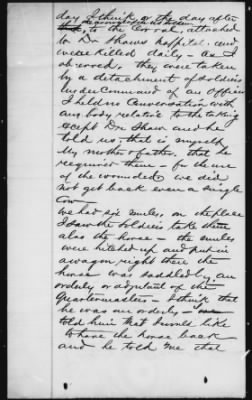 day I think, or the day after
to the Corral, attached
to Dr Shaws hospital, and
were killed daily - as I
observed, they were taken
by a detachment of soldiers
under command of an Officer
I held no Conversation with
any body relative to the taking
except Dr Shaw and he
told us, that is myself
My mother & father, that he
required them - for the use
of the wounded, we did
not get back even a single
Cow -
We had six mules, on the place
I saw the soldiers take them
also the horse - the mules
were hitched up and put in
a wagon right there the
horse was saddled by an
orderly or adjutant of the
Quartermasters - I think that
he was an orderly -
told him that I would like
to have the horse back
and he told me that